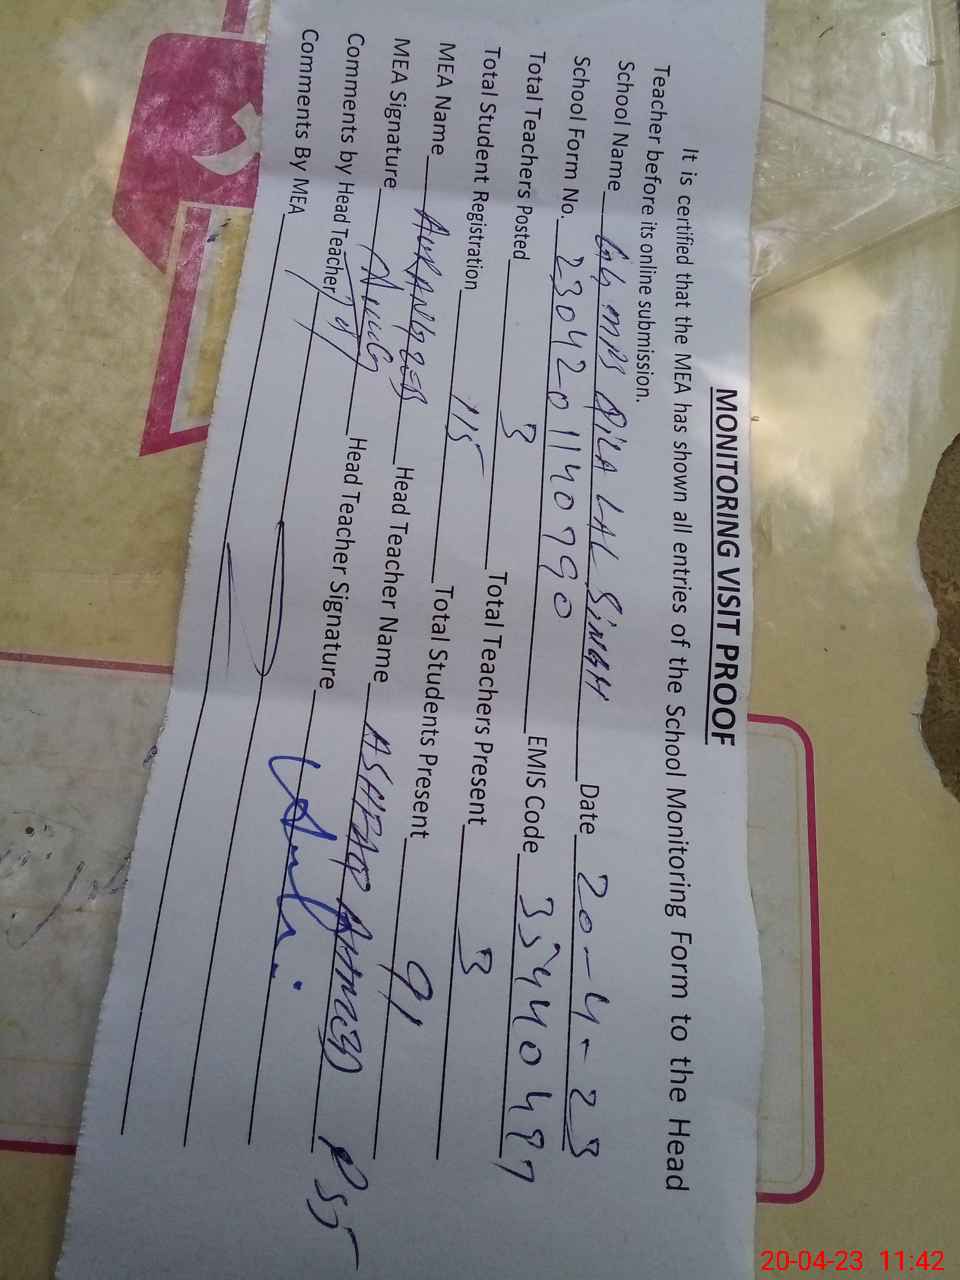 MONITORING VISIT PROOF
It is certified that the MEA has shown all entries of the School Monitoring Form to the Head
Teacher before its online submission.
School Name QILA LAL SINGH Date 20-4-23
School Form No. 2304201140790 EMIS Code 35440487
Total Teachers Posted 3 Total Teachers Present 3
Total Student Registration 115 Total Students Present 91
MEA Name AURANGZEB Head Teacher Name ASHFAQ AHMED PST
MEA Signature Head Teacher Signature
Comments by Head Teacher
Comments By MEA
20-04-23 11:42